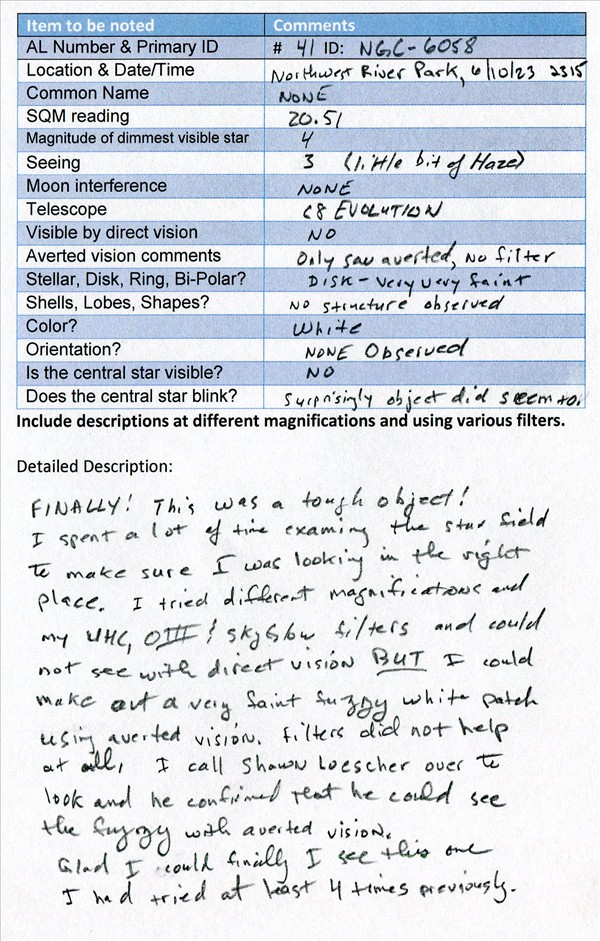 Item to be noted Comments
AL Number & Primary ID # 41 ID: NGC-6058
Location & Date/Time Northwest River Park, 6/10/23 2315
Common Name NONE
SQM reading 20.51
Magnitude of dimmest visible star 4
Seeing 3 (little bit of Haze)
Moon interference NONE
Telescope C8 EVOLUTION
Visible by direct vision NO
Averted vision comments Only saw averted, No filter
Stellar, Disk, Ring, Bi-Polar? DISK - very very faint
Shells, Lobes, Shapes? NO structure observed
Color? White
Orientation? NONE Observed
Is the central star visible? NO
Does the central star blink? Surprisingly object did seem to.
Include descriptions at different magnifications and using various filters.
Detailed Description:
FINALLY! This was a tough object!
I spent a lot of time examing the star field
to make sure I was looking in the right
place. I tried different magnifications and
my UHC, OIII ! skyglow filters and could
not see with direct vision BUT I could
make out a very faint fuzzy white patch
using averted vision. Filters did not help
at all, I call Shawn Loescher over to
look and he confirmed that he could see
the fuzzy with averted vision.
Glad I could finally I see this one
I had tried at least 4 times previously.